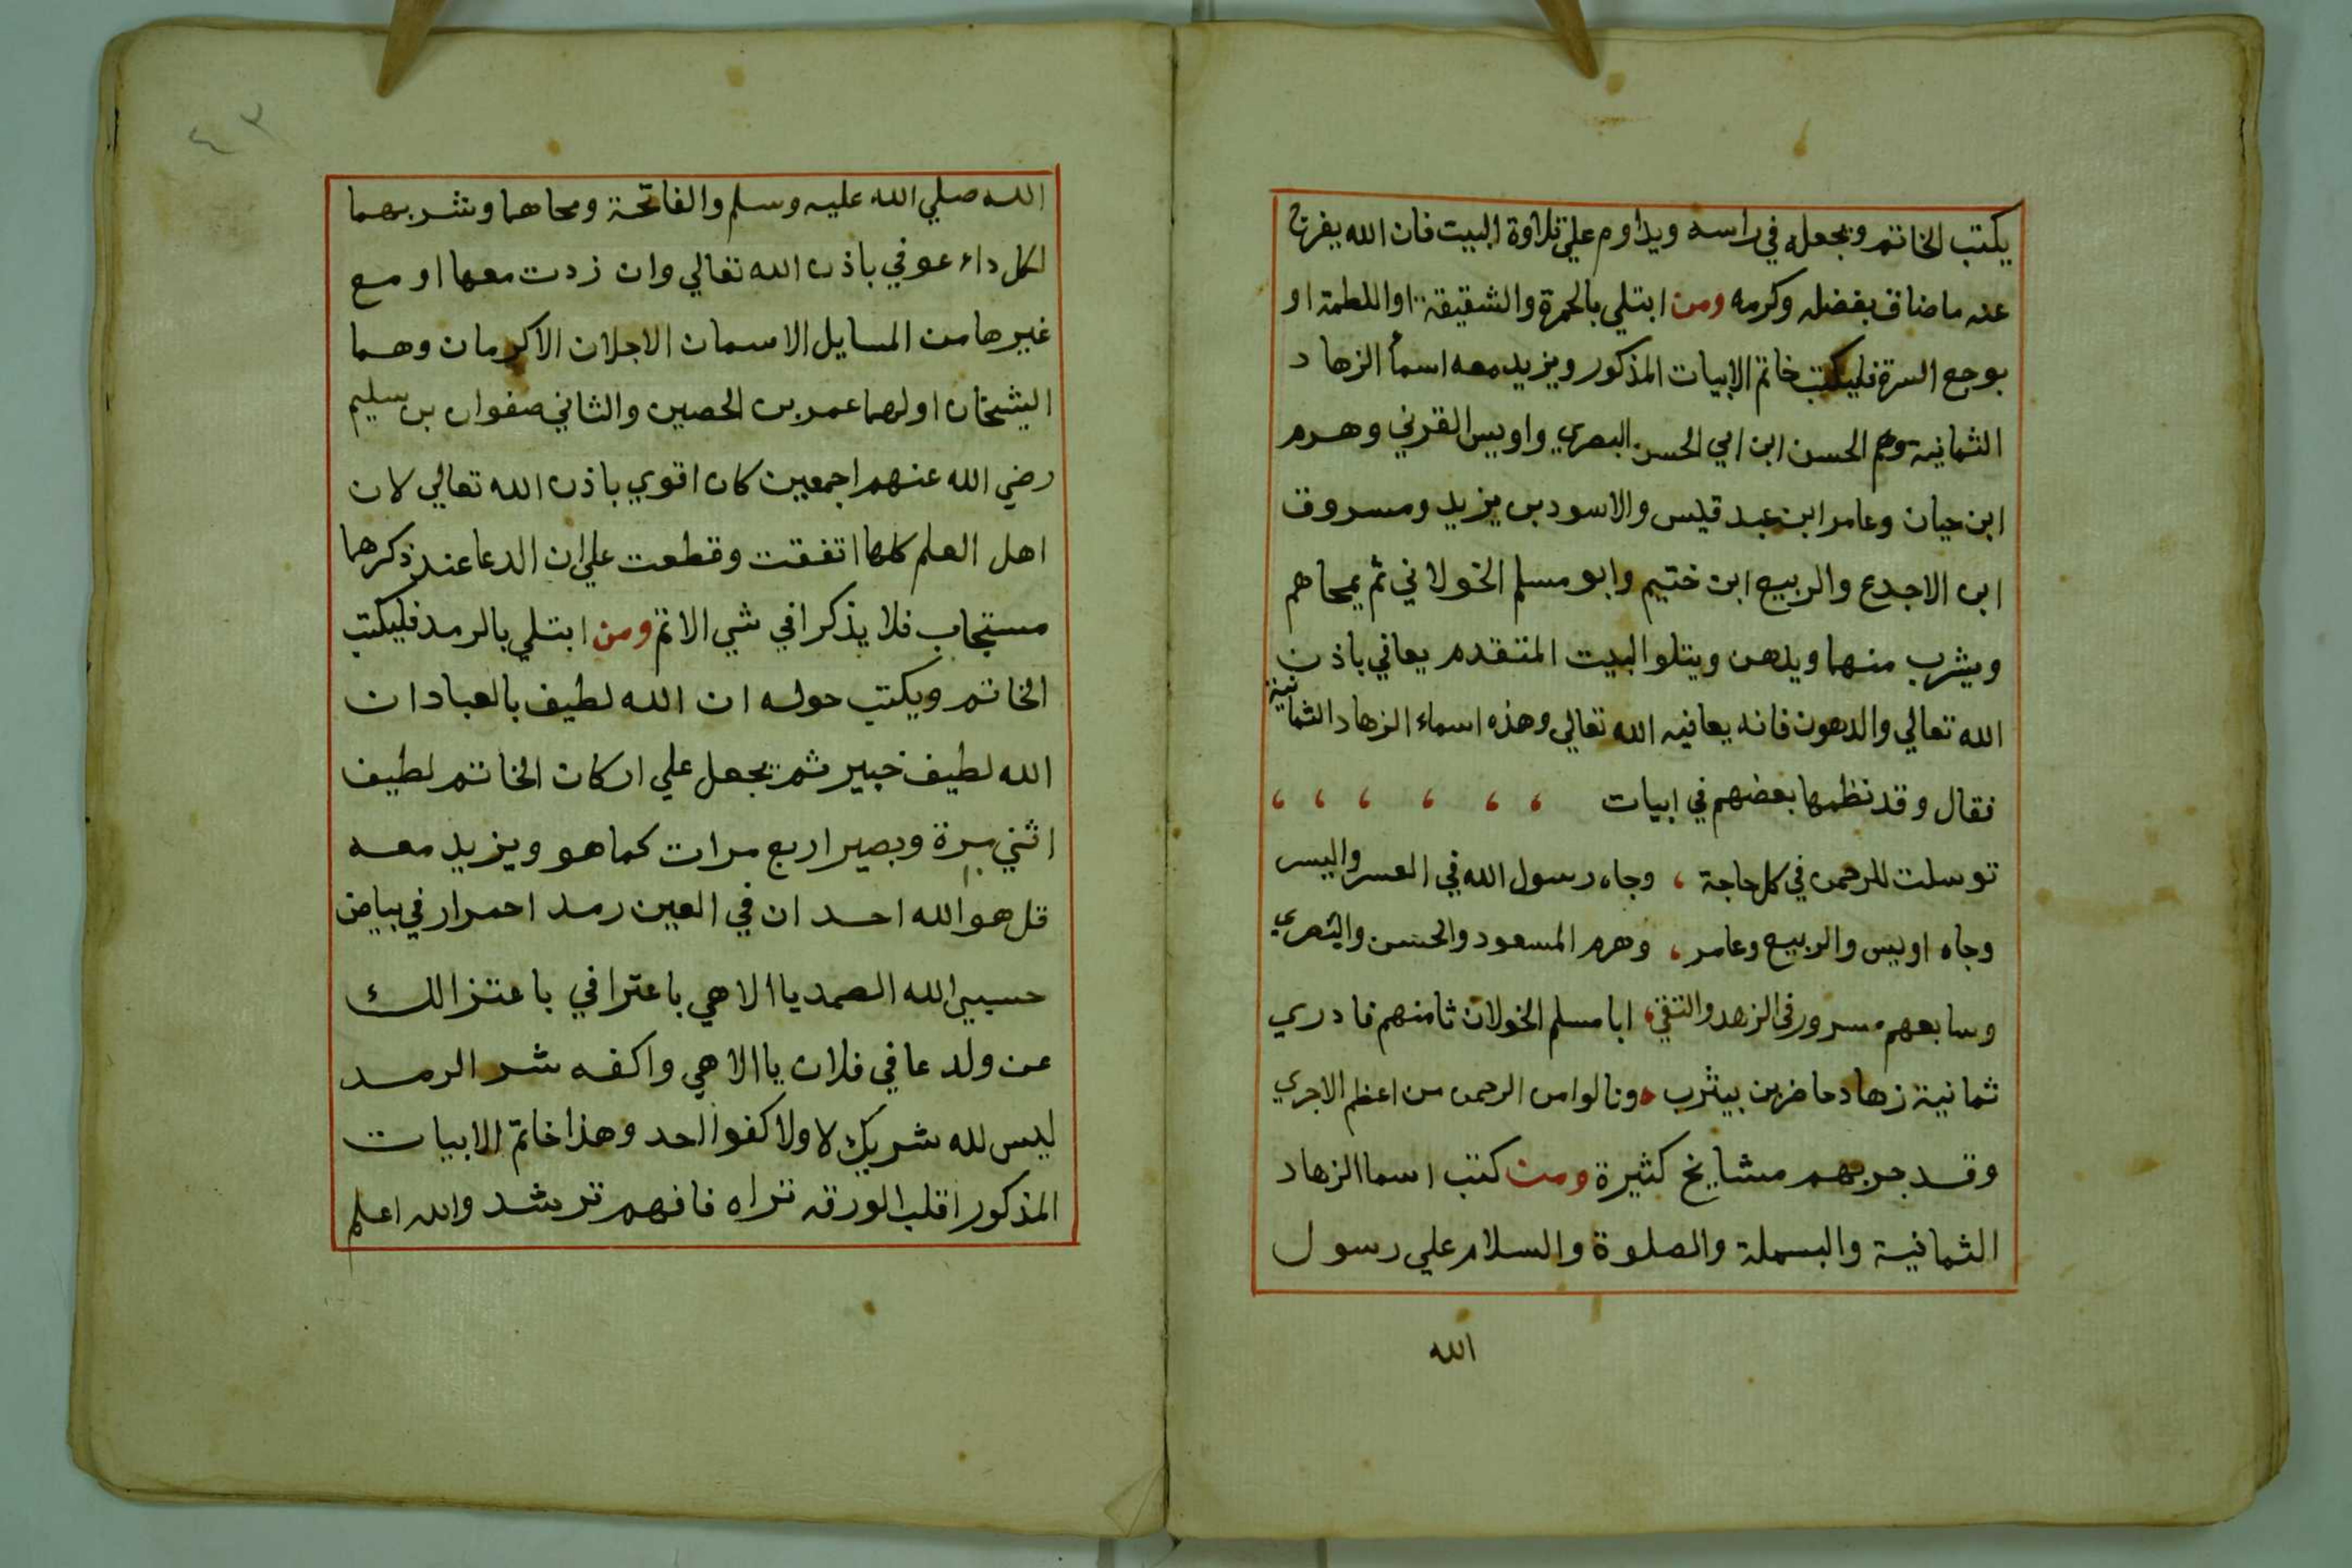 يكتب الخاتم ويجعله في راسه ويداوم علي تلاوة البيت فان الله يفرج
عنه ما ضاق بفضله وكرمه ومن ابتلي بالحمرة والشقيقة او اللطمة او
بوجع السرة فليكتب خاتم الابيات المذكور ويزيد معه اسمأ الزهاد
الثمانية وهم الحسن ابن ابي الحسن البصري واويس القرني وهرم
ابن حيان وعامر ابن عبد قيس والاسود بن يزيد ومسروق
ابن الاجدع والربيع ابن ختيم وابو مسلم الخولاني ثم يمحاهم
ويشرب منهما ويدهن ويتلو البيت المتقدم يعافي باذن
الله تعالي والدهون فانه يعافيه الله تعالي وهذه اسماء الزهاد الثمانية
فقال وقد نظمها بعضهم في ابيات ، ، ، ، ، ،
توسلت للرحمن في كل حاجة ، وجاه رسول الله في العسر واليسر
وجاه اويس والربيع وعامر ، وهرم المسعود والحسن والبصري
وسابعهم مسرور في الزهد والتقي ، ابا مسلم الخولان ثامنهم فادري
ثمانية زهاد حاضرين بيثرب ، ونالوا من الرحمن من اعظم الاجري
وقد جربهم مشايخ كثيرة ومن كتب اسما الزهاد
الثمانية والبسملة والصلوة والسلام علي رسول
الله
٤٣
الله صلي الله عليه وسلم والفاتحة ومحاهما وشربهما
لكل داء عوفي باذن الله تعالي وان زدت معها او مع
غيرها من المسايل الاسمان الاجلان الاكرمان وهما
الشيخان اولهما عمر بن الحصين والثاني صفوان بن سليم
رضي الله عنهم اجمعين كان اقوي باذن الله تعالي لان
اهل العلم كلها اتفقت وقطعت علي ان الدعا عند ذكرهما
مستجاب فلا يذكرا في شي الا تم ومن ابتلي بالرمد فليكتب
الخاتم ويكتب حوله ان الله لطيف بالعباد ان
الله لطيف خبير ثم يجعل علي اركان الخاتم لطيف
اثني مرة وبصير اربع مرات كما هو ويزيد معه
قل هو الله احد ان في العين رمد احمرار في بياض
حسبي الله الصمد يا الاهي باعترافي باعتزالك
عن ولد عافي فلان يا الاهي واكفه شر الرمد
ليس لله شريك لا ولا كفوا احد وهذا خاتم الابيات
المذكور اقلب الورقه تراه فافهم ترشد والله اعلم